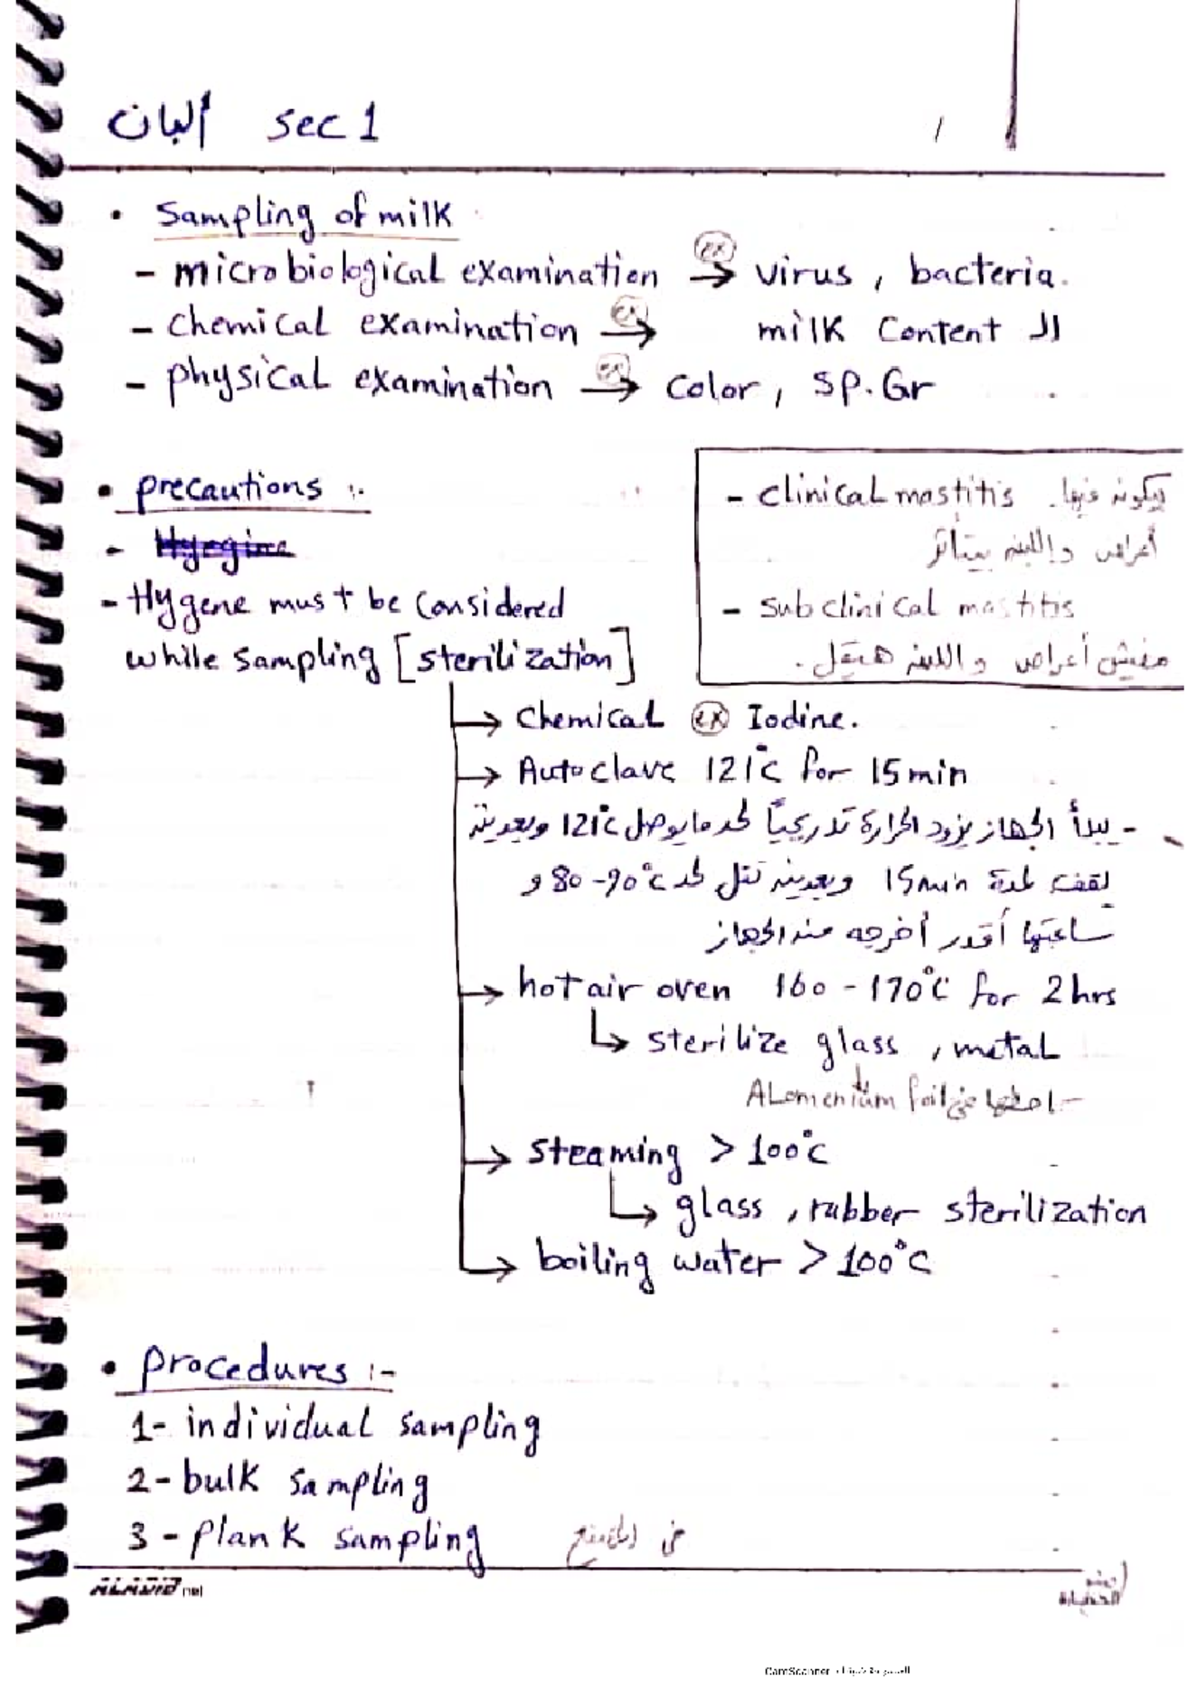 ألبان sec 1
1
• Sampling of milk
- microbiological examination ex → virus, bacteria.
- chemical examination ex → milk content الـ
- physical examination ex → color, sp.Gr
• precautions :-
- Hygene must be considered
while sampling [sterilization]
- clinical mastitis يكون فيها
أعراض واللبن بيتأثر
- subclinical mastitis
مفيش أعراض واللبن هيقل.
→ chemical ex Iodine.
→ Autoclave 121°c for 15min
- يبدأ الجهاز يزود الحرارة تدريجياً لحد ما يوصل 121°c وبعدين
لمدة 15min وبعدين تقل لحد 80-90°c و
ساعتها أقدر أخرجه من الجهاز
→ hot air oven 160 - 170°c for 2 hrs
→ sterilize glass, metal
- احطها في ALomenium foil
→ steaming > 100°c
→ glass, rubber sterilization
→ boiling water > 100°c
• procedures :-
1- individual sampling
2- bulk sampling
3- plank sampling في المصنع
CamScanner